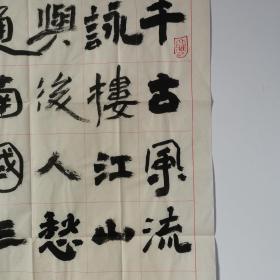 千古風流
詠樓江山
與後人愁
通南國三